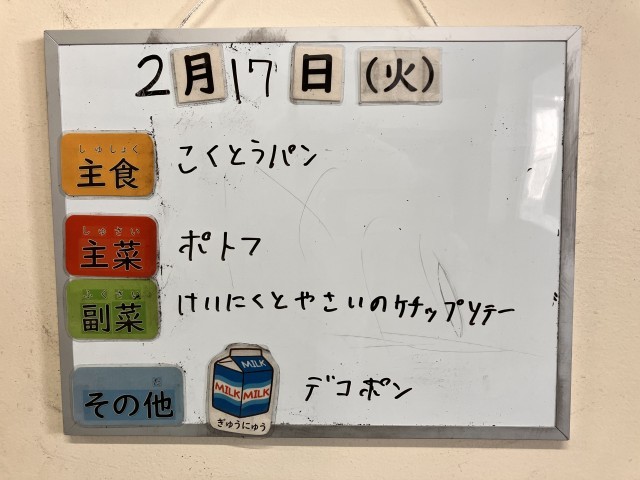 2月17日(火)
しゅしょく
主食 こくとうパン
しゅさい
主菜 ポトフ
副菜 けいにくとやさいのケチャップソテー
その他 MILK MILK MILK ぎゅうにゅう デコポン